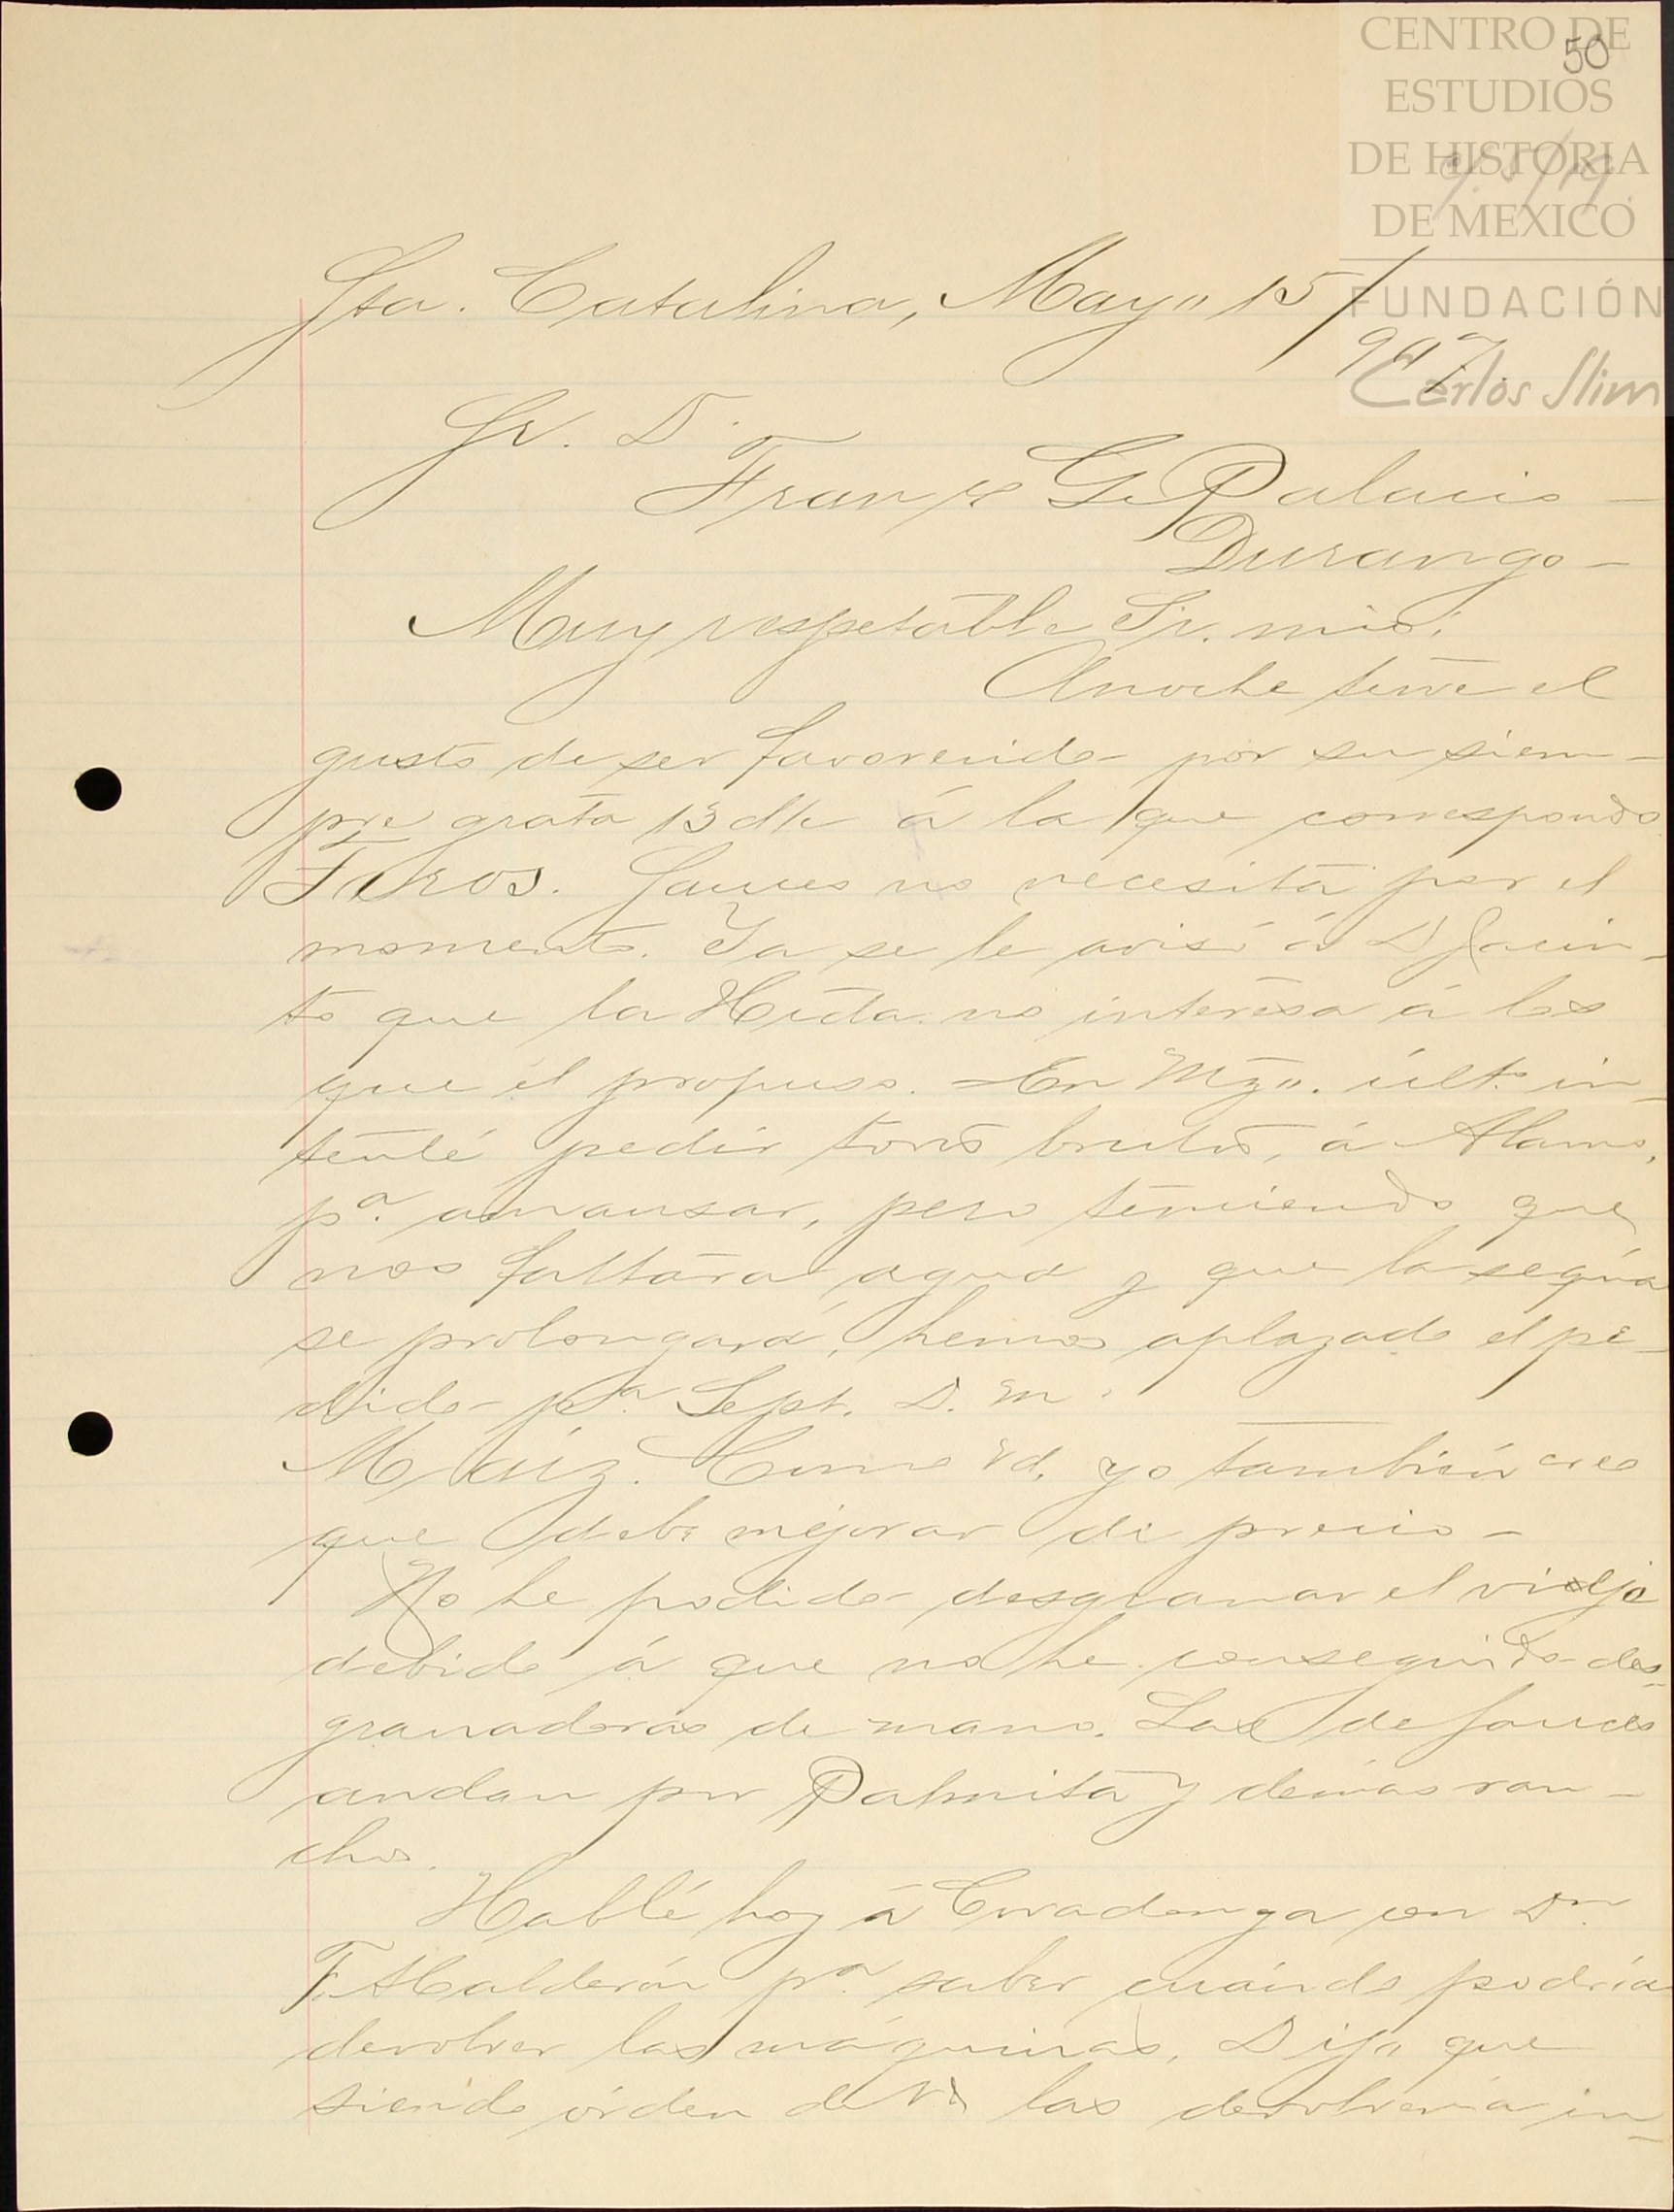 CENTRO DE
50
ESTUDIOS
DE HISTORIA
DE MEXICO
FUNDACIÓN
Carlos Slim
Sta. Catalina, Mayo 15/
907.
Sr. D.
Franco G. Palacio –
Durango –
Muy respetable Sr. mio:
Anoche tuve el
gusto de ser favorecido por su siem-
pre grata 13 d/c á la que correspondo
Toros. Sauces no necesita por el
momento. Ya se le avisó á D Jacin-
to que la Hcda. no interesa á los
que él propuso. – En Mzo. últo. in-
tenté pedir toros brutos, á Alamo,
pa. amansar, pero temiendo que
nos faltára agua y que la sequía
se prolongará, hemos aplazado el pe-
dido pa. Sept. D. m.
Maíz. Como Vd, yo también creo
que debe mejorar de precio –
No he podido desgranar el viejo
debido á que no he conseguido des-
granadoras de mano. Las de Sauces
andan por Palmita y demás ran-
chos.
Hablé hoy á con Dn
F. Calderón pa. saber cuándo podría
devolver las máquinas. Dijo que
siendo órden de Vd las devolvería in-